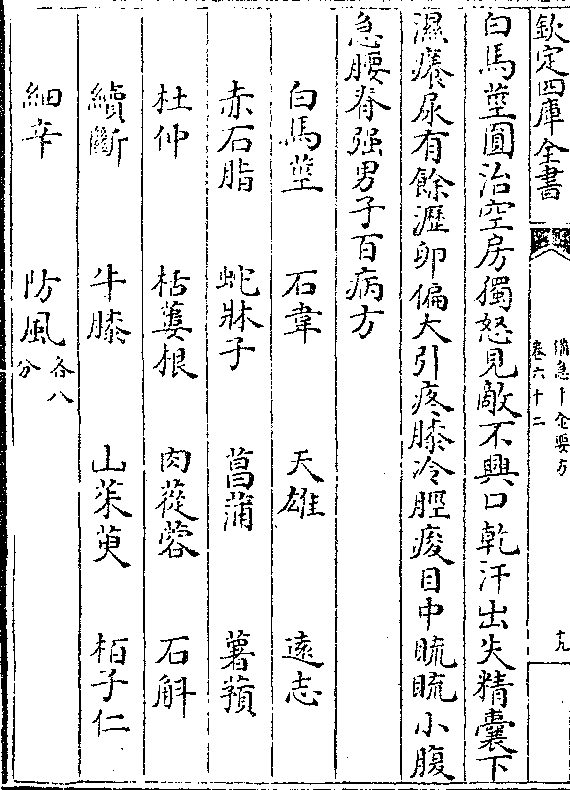 欽定四庫全書
備急千金要方
卷六十二
十九
白馬莖圓治空房獨怒見敵不興口乾汗出失精囊下
濕癢尿有餘瀝卵偏大引疼膝冷脛痠目中䀮䀮小腹
急腰脊强男子百病方
白馬莖 石韋 天雄 遠志
赤石脂 蛇牀子 菖蒲 薯蕷
杜仲 栝蔞根 肉蓯蓉 石斛
續斷 牛膝 山茱萸 栢子仁
細辛 防風各八分